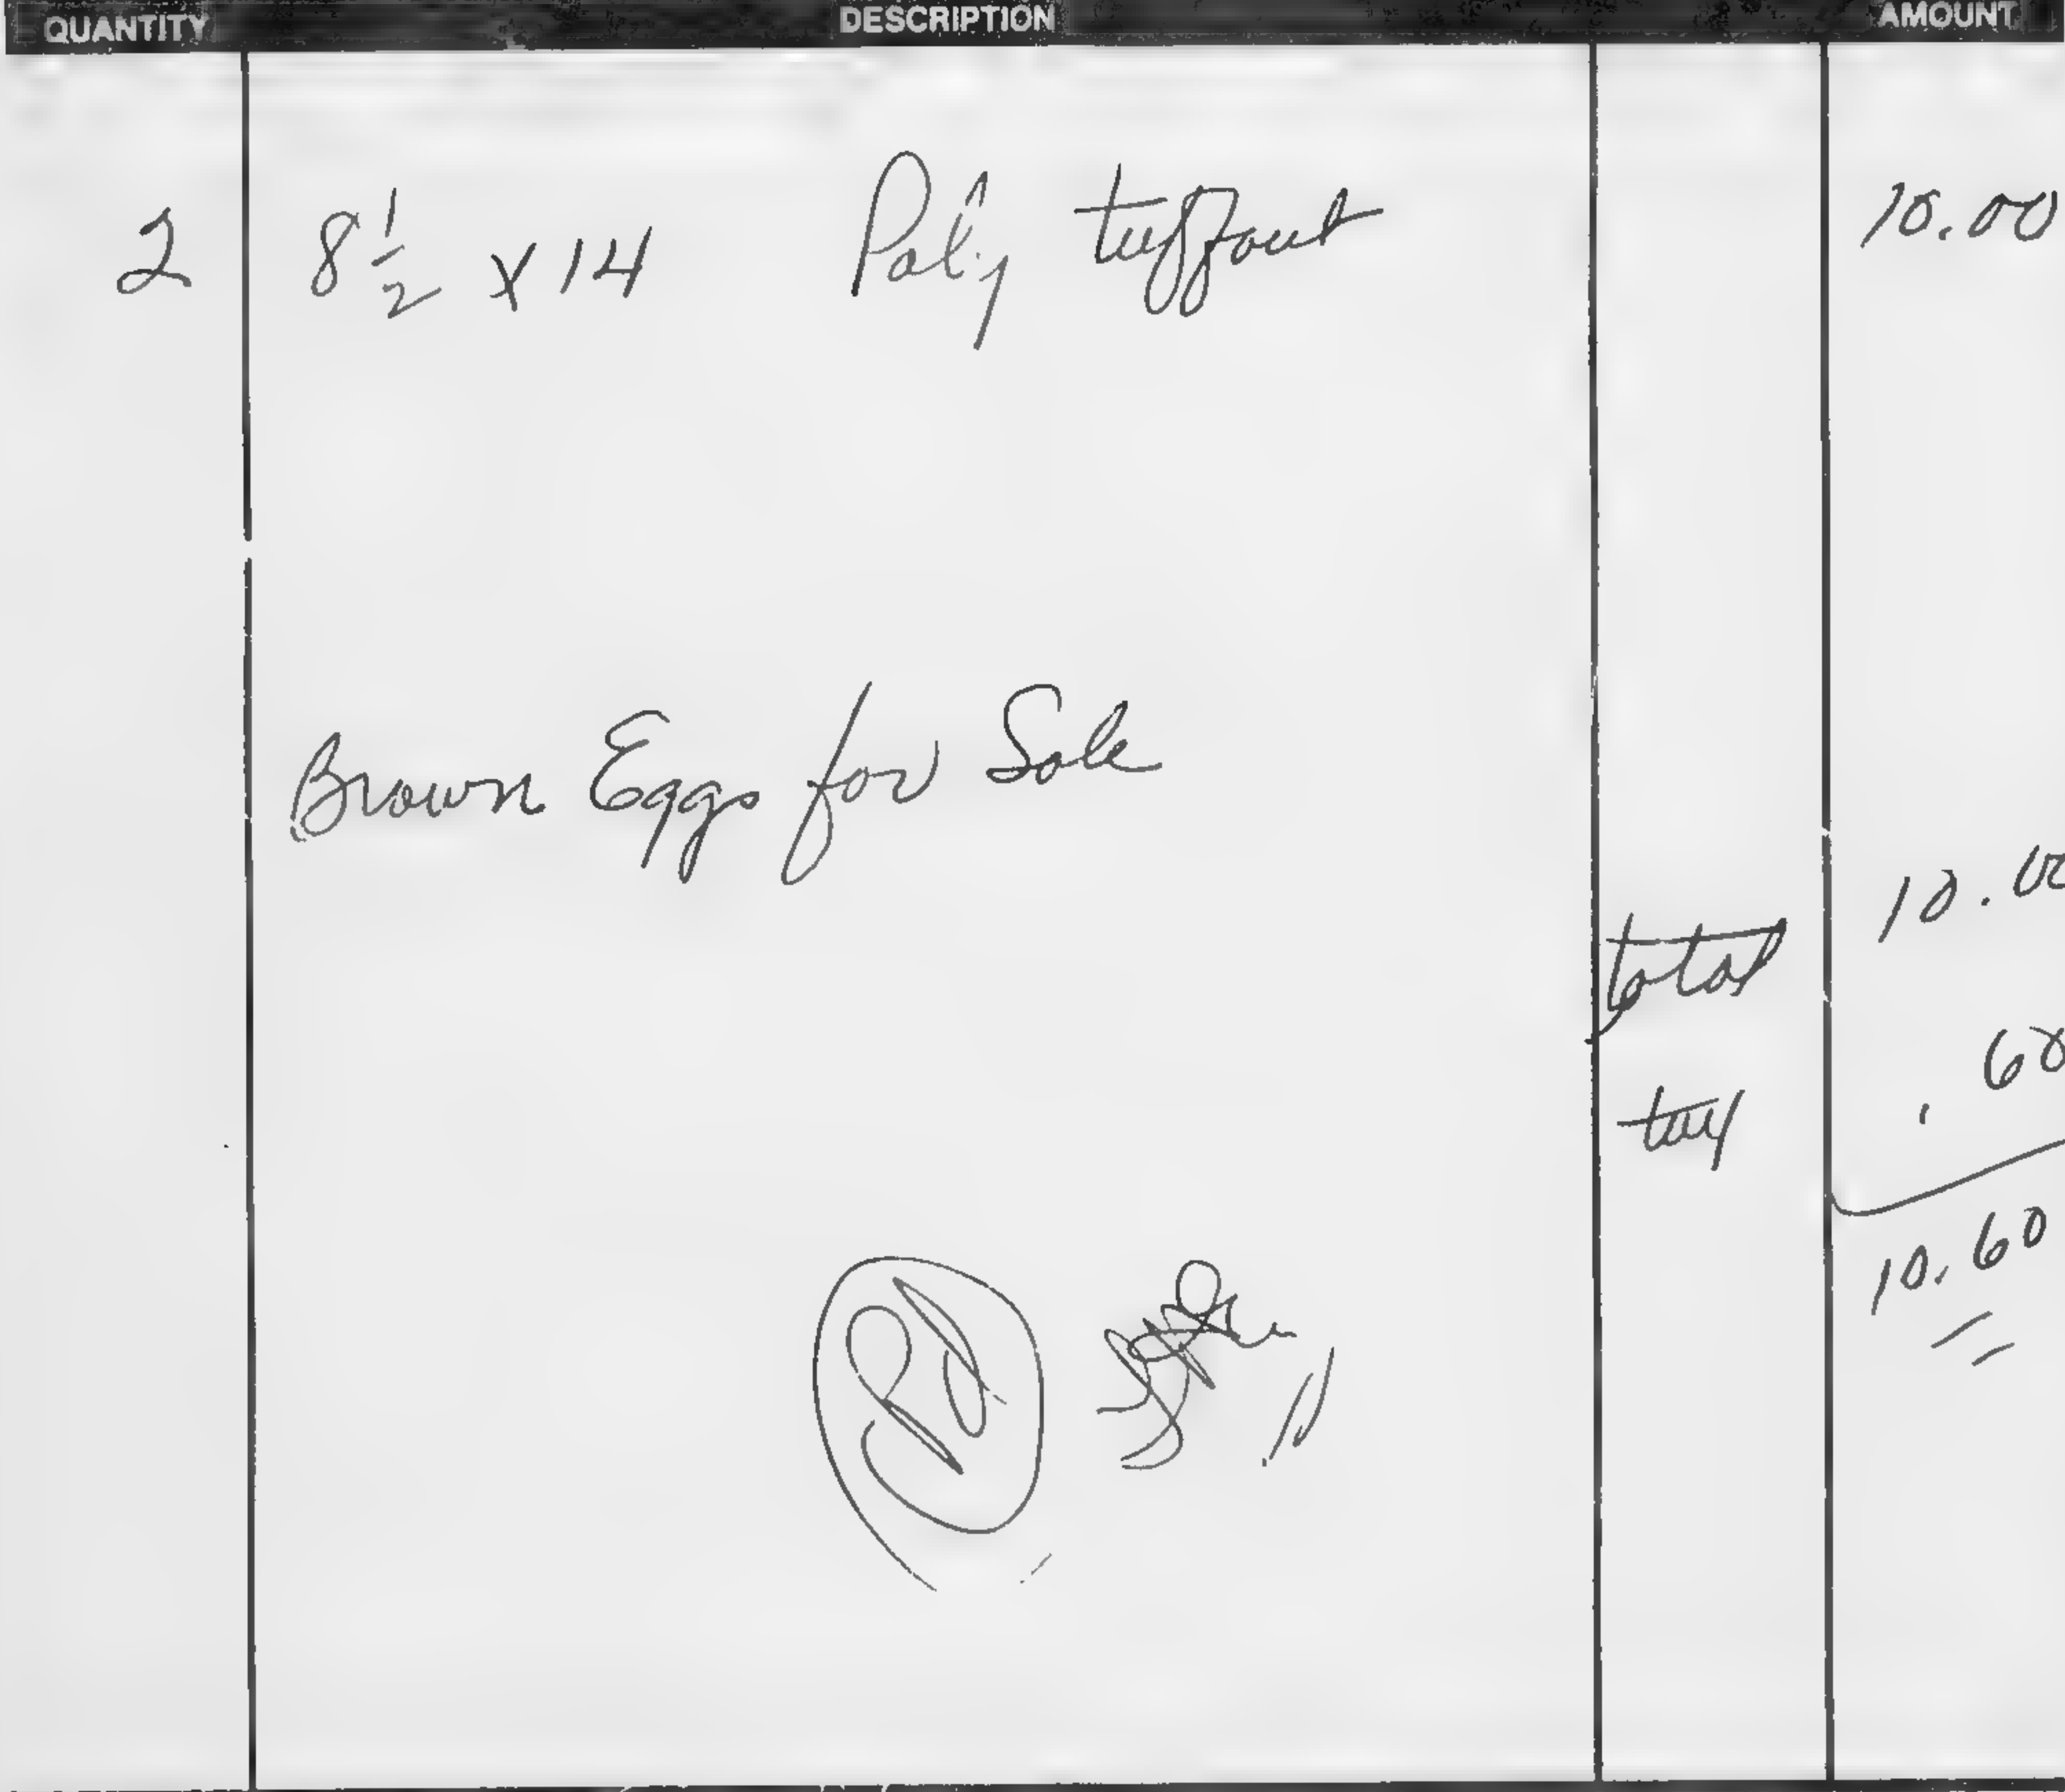 QUANTITY DESCRIPTION AMOUNT
2 8 1/2 x 14 Poly 10.00
Brown Eggs for Sale
total 10.00
tax .60
10.60